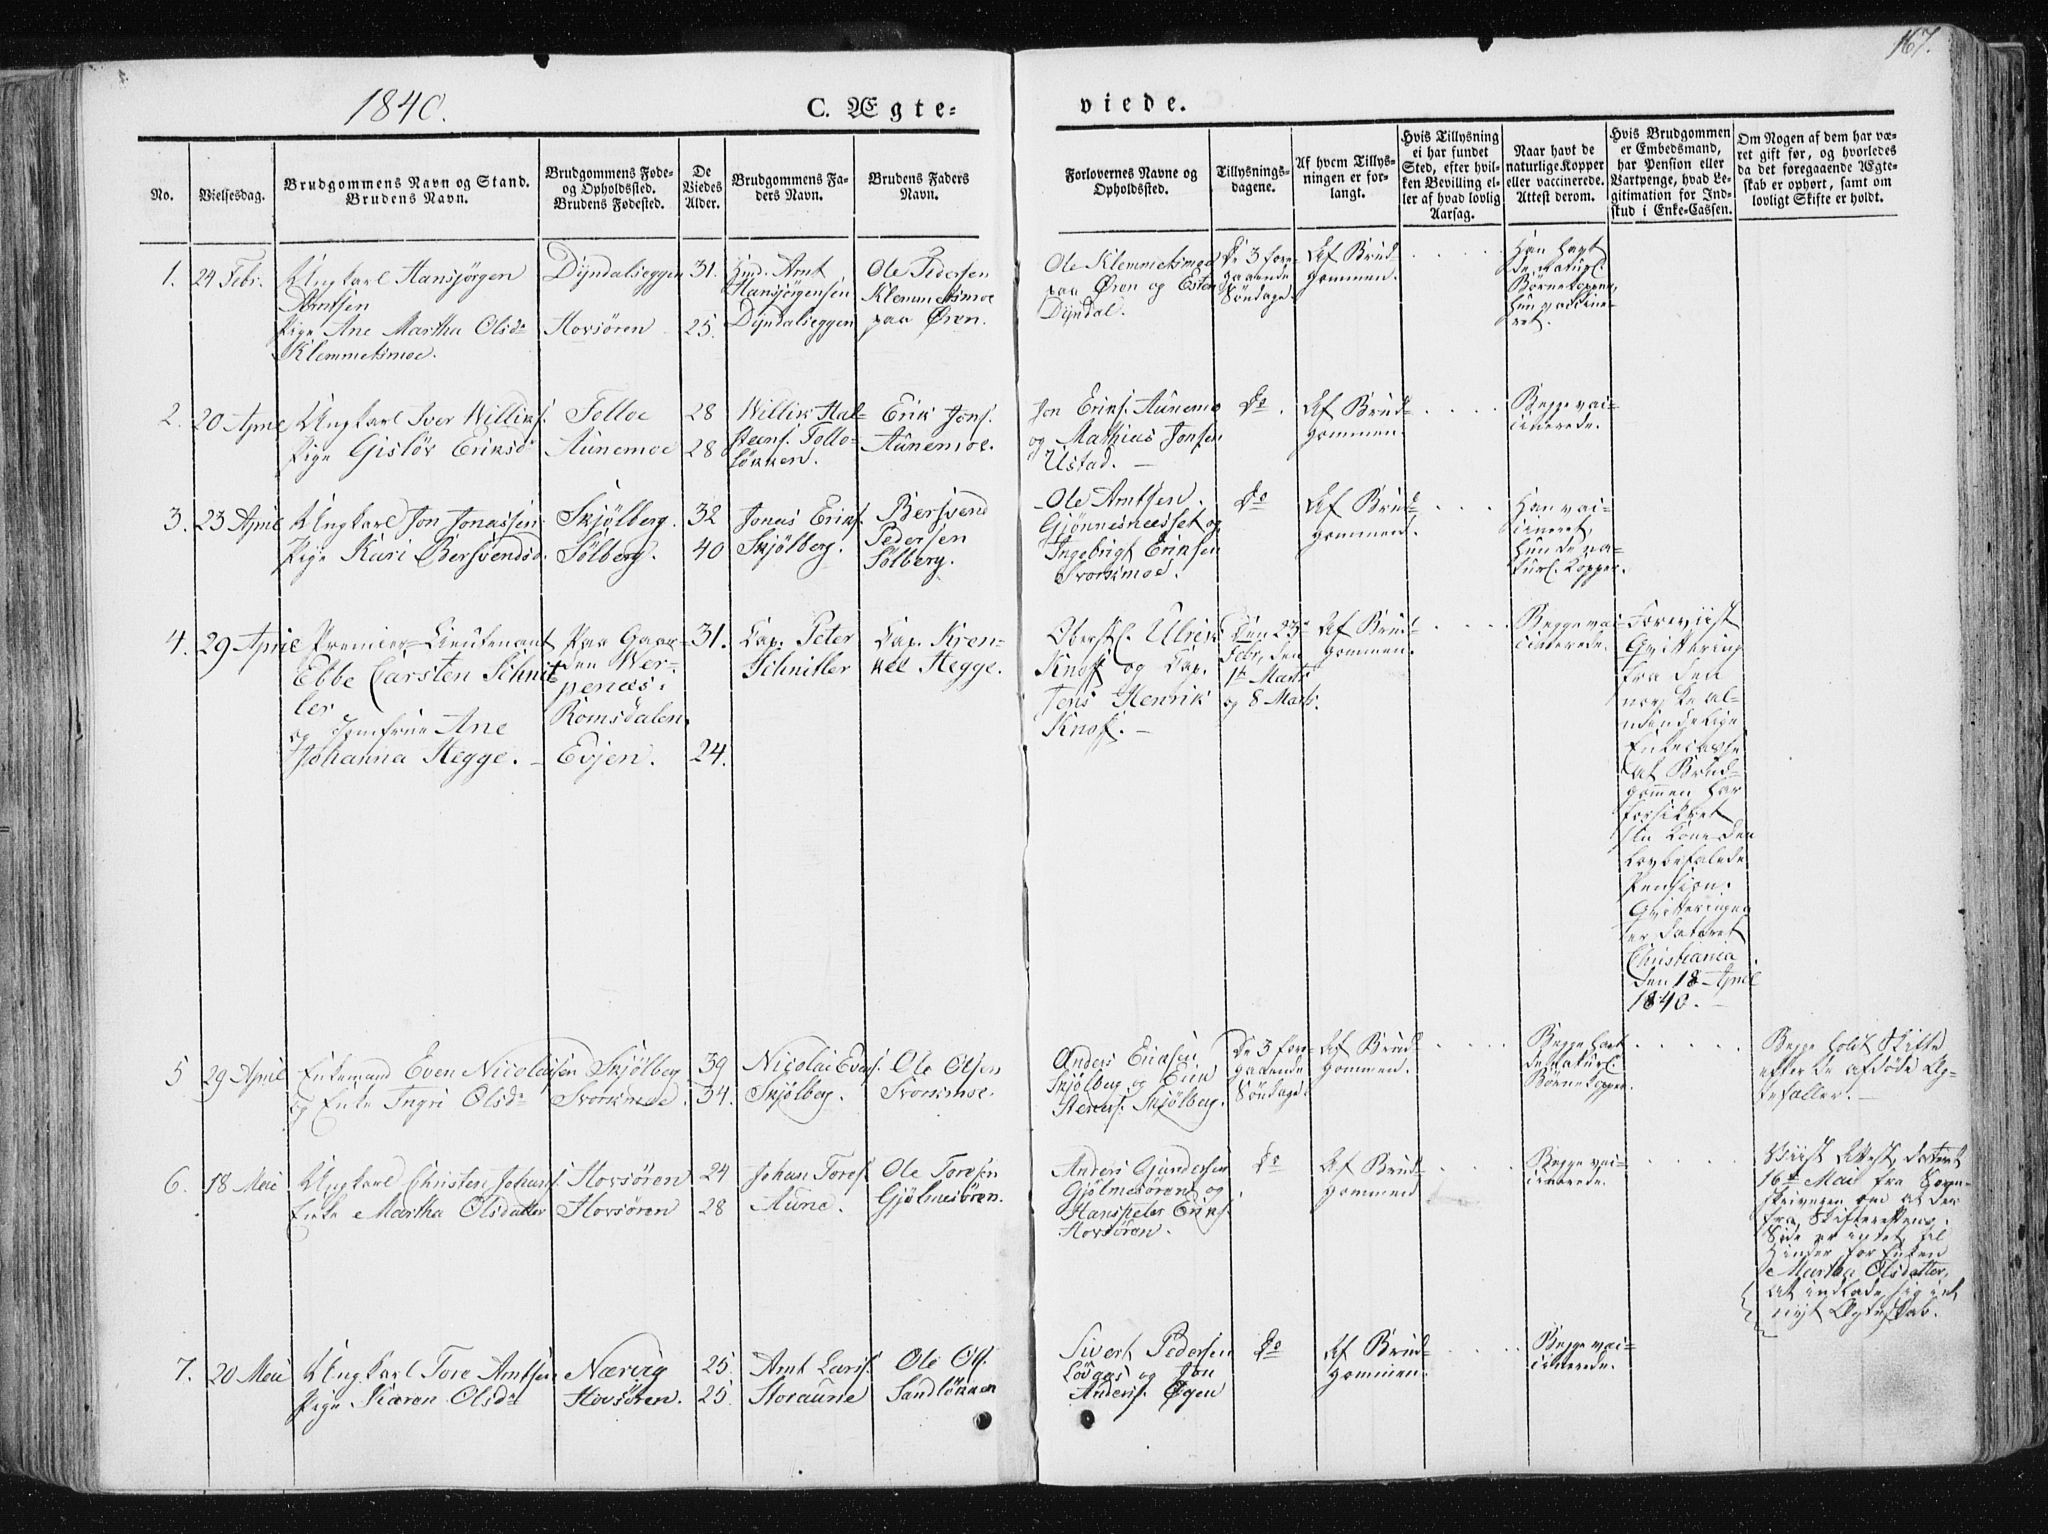 167.
1840.
C. Ægte=
viede.
No.
Vielsesdag.
Brudgommens Navn og Stand.
Brudens Navn.
Brudgommens Føde=
og Opholdssted.
Brudens Fødested.
De
Viedes
Alder.
Brudgommens Fa=
ders Navn.
Brudens Faders
Navn.
Forlovernes Navne og
Opholdssted.
Tillysnings=
dagene.
Af hvem Tillys=
ningen er for=
langt.
Hvis Tillysning
ei har fundet
Sted, efter hvil=
ken Bevilling el=
ler af hvad lovlig
Aarsag.
Naar havt de
naturlige Kopper
eller vaccinerede.
Attest derom.
Hvis Brudgommen
er Embedsmand,
har Pension eller
Vartpenge, hvad Le=
gitimation for Ind=
skud i Enke=Cassen.
Om Nogen af dem har væ=
ret gift før, og hvorledes
da det foregaaende Ægte=
skab er ophørt, samt om
lovligt Skifte er holdt.
1.
24 Febr.
Ungkarl Hansjörgen
Arntsen
Pige Ane Martha Olsdr
Klemmetsmoe.
Dyndalseggen
Hovsören
31.
25.
Hmd. Arnt
Hansjörgensen
Dyndalseggen
Ole Pedersen
Klemmetsmoe
paa Øren.
Ole Klemmetsmoe
paa Øren og Esten
Dyndal.
De 3 fore=
gaaende
Söndage.
Af Brud=
gommen.
Han havt
de naturl.
Børnekopper,
hun vaccine=
ret.
2.
20 April
Ungkarl Iver Williks.
Pige Gislöv Eriksdr
Folloe
Aunemoe
28
28
Willik Hal=
steens. Follo=
lökken.
Erik Jons.
Aunemoe.
Jon Eriks. Aunemo
og Mathias Jonsen
Ustad. —
Do.
Af Brud=
gommen.
Begge vac=
cinerede.
3.
23 April
Ungkarl Jon Jonassen
Pige Kari Bersvendsd.
Skjölberg.
Sölberg.
32
40
Jonas Eriks.
Skjölberg.
Bersvend
Pedersen
Sölberg.
Ole Arntsen
Gjönnesnæsset og
Ingebrigt Eriksen
Svorkmoe.
Do
Af Brud=
gommen.
Han vac=
cineret,
hun de na=
turl. Kopper.
4.
29 April
Premier=Lieutenant
Ebbe Carsten Schnit
ler
og Jomfrue Ane
Johanna Hegge. —
Paa Gaar=
den Wer=
penæs i
Romsdalen.
Evjen.
31.
24.
Cap. Peter
Schnitler
Cap. Kren=
kel Hegge.
Oberstl. Ulrik
Knoff og Cap.
Jens Henrik
Knoff. —
Den 23
Febr, den
1te Marts
og 8 Marts.
Af Brud=
gommen.
Begge vac=
cinerede.
Foreviist
Qvittering
fra den
norske al=
mindelige
Enkecasse
at Brud=
gommen har
forsikkret
sin Kone den
lovbefalede
Pension.
Qvitteringen
er dateret
Christiania
den 18 April
1840. —
5
29 April
Enkemand Even Nicolaisen
og Enke Ingri Olsdr
Skjölberg
Svorkmoe.
39
34.
Nicolai Evens.
Skjölberg.
Ole Olsen
Svorkmoe.
Anders Eriksen
Skjölberg og Erik
Steners. Skjölberg.
De 3 fore=
gaaende
Söndage.
Af Brud=
gommen.
Begge havt
de naturl.
Børnekopper.
Begge holdt Skifte
efter de afdöde Æg=
tefæller. —
6.
18 Mai
Ungkarl Christen Johans.
Enke Martha Olsdatter
Hovsören
Hovsören
24
28
Johan Tores.
Aune.
Ole Toresen
Gjölmesören.
Anders Gundersen
Gjölmesören og
Hanspeter Eriks.
Hovsören.
Do
Af Brud=
gommen.
Begge vac=
cinerede.
Viist Attest, dateret
16de Mai fra Soren=
skriveren om at der
fra Skifterettens
Side er intet til
Hinder for Enken
Martha Olsdatter,
at indlade sig i et
nyt Ægteskab.
7.
20 Mai
Ungkarl Tore Arntsen
Pige Karen Olsdr
Nærvig
Hovsören.
25.
25.
Arnt Lars.
Storaune
Ole Ols.
Sandlökken
Sivert Pedersen
Lövaas og Jon
Anders. Øyen
Do
Af Brud=
gommen.
Begge vac=
cinerede.